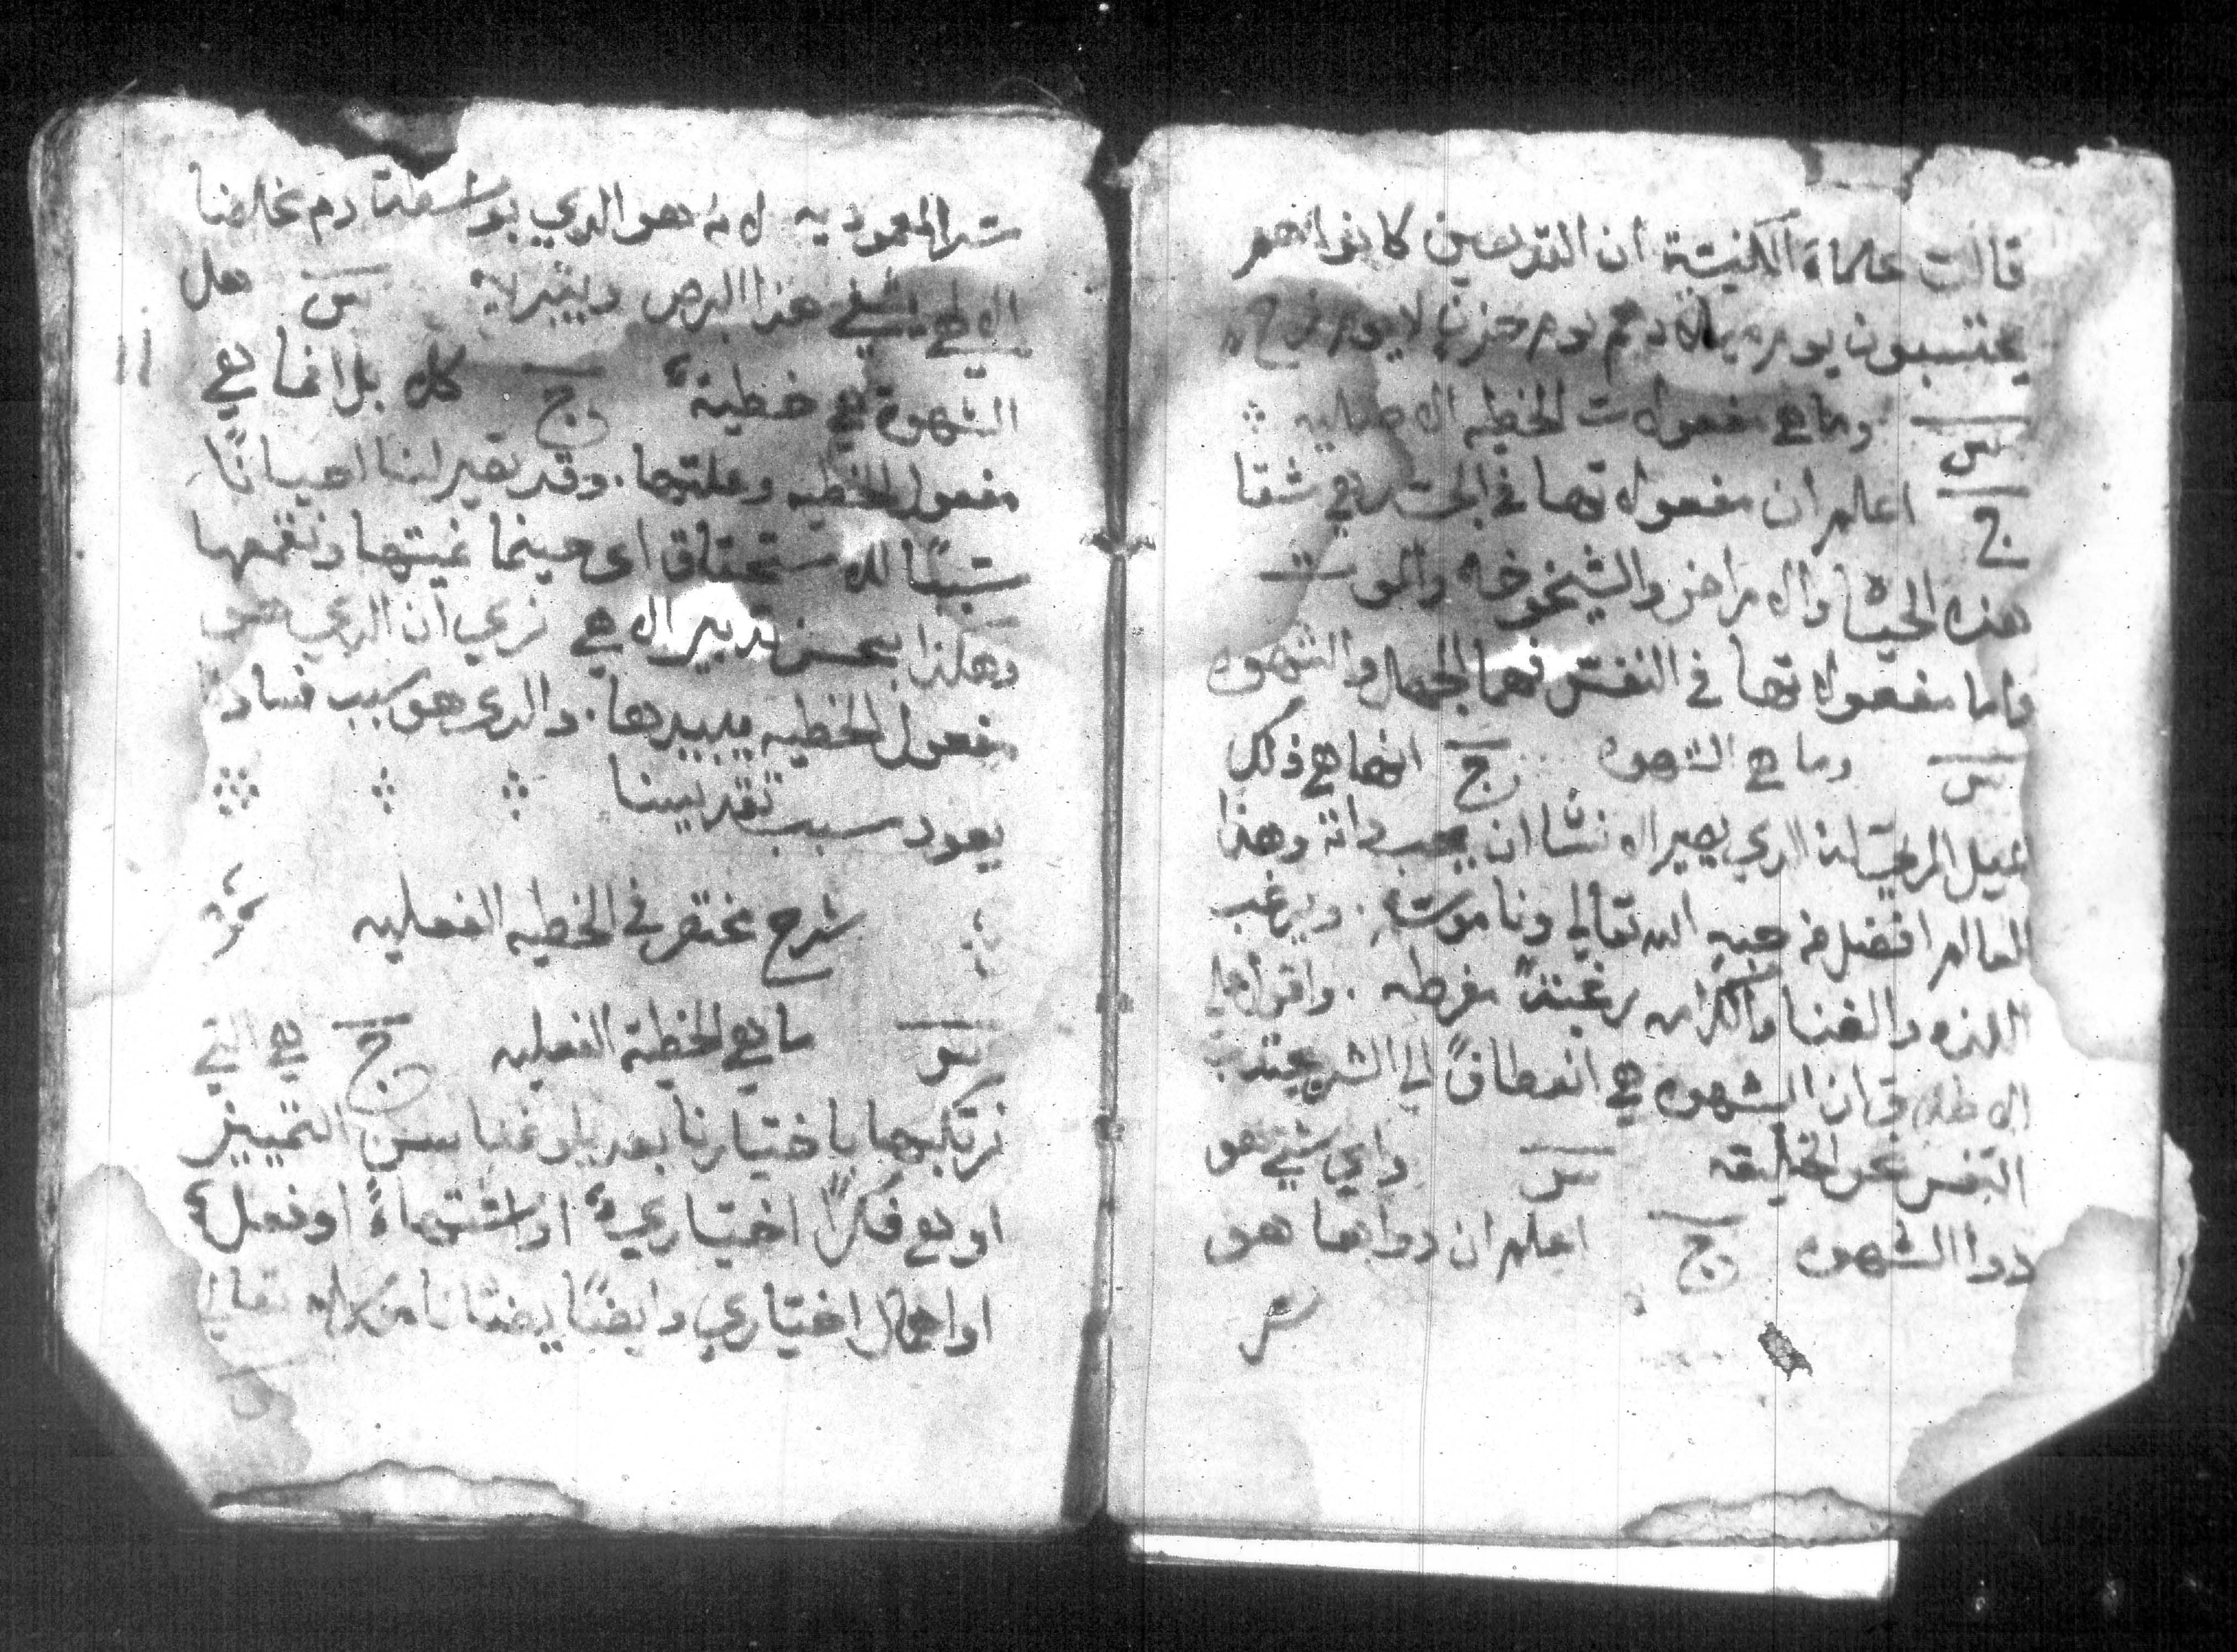 قالت علماء الكنيسة ان القديسين كانوا انهم
يحتسبون يوم ميلادهم يوم حزن لا يوم فرح
س وما هي مفعولات الخطيه الاصليه
ج اعلم ان مفعولاتها في الجسد هي شقا
هذه الحياه والامراض والشيخوخه والموت
واما مفعولاتها في النفس فهما الجهل والشهوه
س وما هي الشهوه ج انها هي ذلك
الميل الردي الذي يصير الانسان ان يحب داته وهذا
العالم افضل من حبه الله تعالي وناموسه. ويرغب
اللذه والغنا والكرامه رغبتاً مفرطه. واقول علي
الاطلاق ان الشهوه هي انعطافاً الي الشر يجتذب
النفس عن الخليقه س واي شي هو
دوا الشهوه ج اعلم ان دواها هو
سر
سر المعموديه لانه هو الدي بواسطتة دم مخلصنا
الالهي يشفي هذا البرص ويبتدلاه س هل
الشهوة هي خطية ج كلا بل انما هي
مفعول الخطيه وعلتها. وقد تصير لنا احياناً
سبباً للاستحقاق اي حينما نميتها ونقمعها
وهكذا بحسن تدبير الاهي نري ان الدي هو
مفعول الخطيه يبيدها. والدي هو سبب فساد
يعود سبب تقديسنا
شرح مختصر في الخطيه الفعليه
س ما هي الخطية الفعليه ج هي التي
نرتكبها باختيارنا بعد بلوغنا سن التمييز
او هي فكراً اختياري او اشتهاءً او فعل
او اهمال اختياري وايضاً يضاد ناموسه تعالي
11